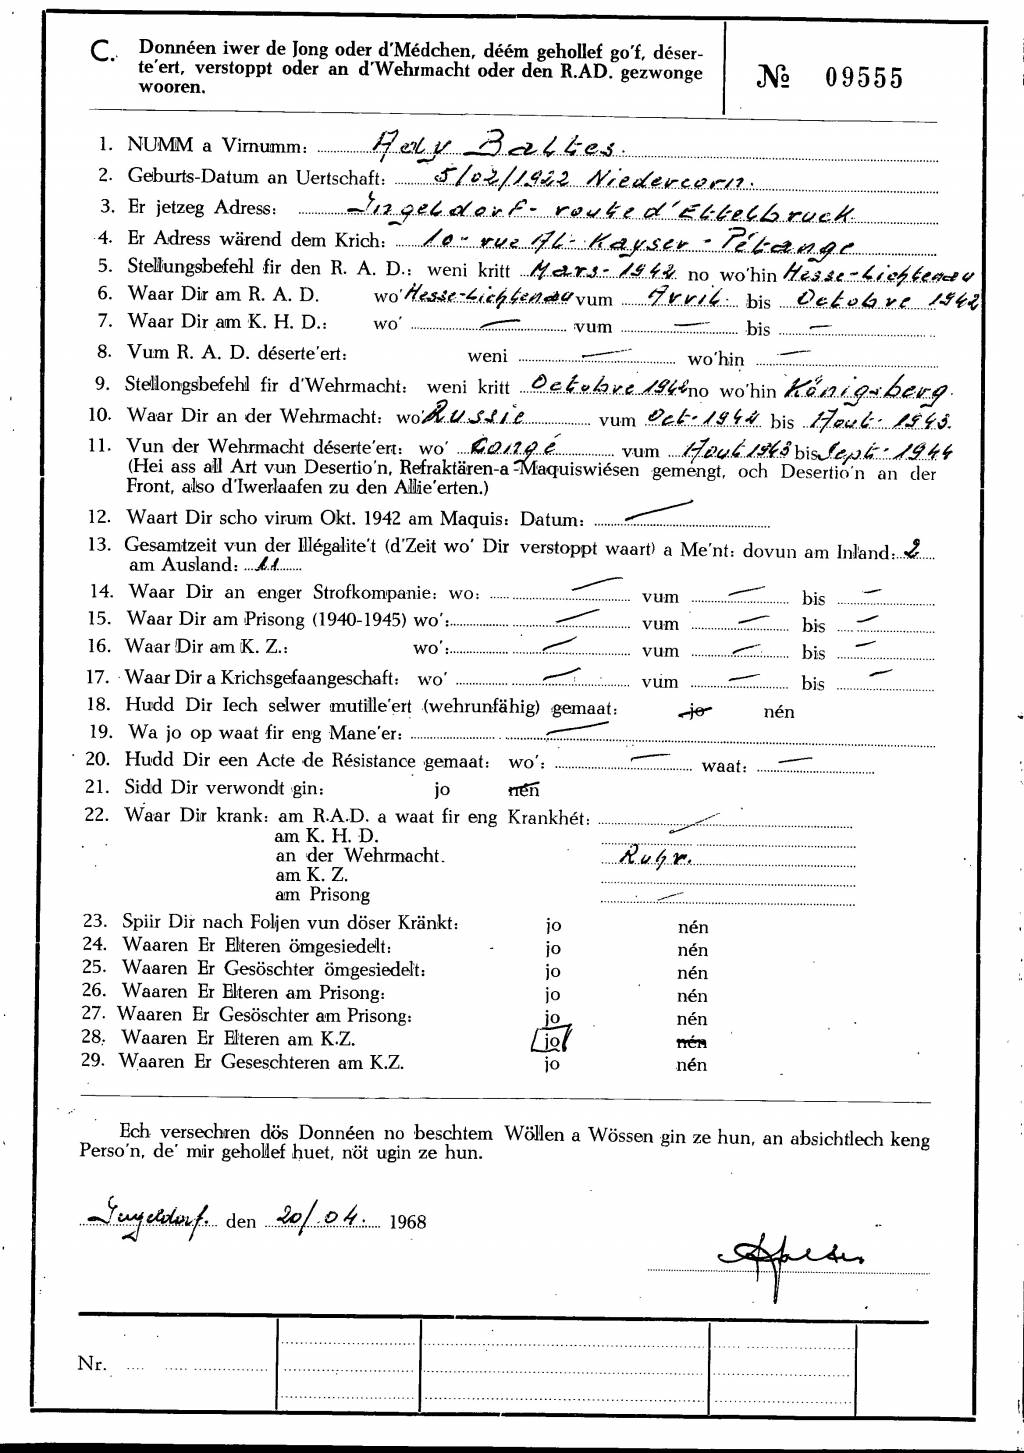 C. Donnéen iwer de Jong oder d'Médchen, déém gehollef go'f, déser-
te'ert, verstoppt oder an d'Wehrmacht oder den R.AD. gezwonge
wooren.
№ 09555
1. NUMM a Virnumm: Ady Baltes.
2. Geburts-Datum an Uertschaft: 5/02/1922 Niedercorn.
3. Er jetzeg Adress: Ingeldorf - route d'Ettelbruck
4. Er Adress wärend dem Krich: 10 - rue Al- Kayser - Pétange
5. Stellungsbefehl fir den R. A. D.: weni kritt Mars- 1942 no wo'hin Hesse-Lichtenau
6. Waar Dir am R. A. D. wo' Hesse-Lichtenau vum Avril. bis Octobre 1942
7. Waar Dir am K. H. D.: wo' — vum — bis —
8. Vum R. A. D. déserte'ert: weni — wo'hin —
9. Stellongsbefehl fir d'Wehrmacht: weni kritt Octobre 1942 no wo'hin Königsberg.
10. Waar Dir an der Wehrmacht: wo' Russie vum Oct- 1942 bis Aout- 1943.
11. Vun der Wehrmacht déserte'ert: wo' Congé vum Aout 1943 bis Sept- 1944
(Hei ass all Art vun Desertio'n, Refraktären-a Maquiswiésen gemengt, och Desertio'n an der
Front, also d'Iwerlaafen zu den Allie'erten.)
12. Waart Dir scho virum Okt. 1942 am Maquis: Datum: —
13. Gesamtzeit vun der Illégalite't (d'Zeit wo' Dir verstoppt waart) a Me'nt: dovun am Inland: 2
am Ausland: 11
14. Waar Dir an enger Strofkompanie: wo: — vum — bis —
15. Waar Dir am Prisong (1940-1945) wo': — vum — bis —
16. Waar Dir am K. Z.: wo': — vum — bis —
17. Waar Dir a Krichsgefaangeschaft: wo' — vum — bis —
18. Hudd Dir Iech selwer mutille'ert (wehrunfähig) gemaat: jo nén
19. Wa jo op waat fir eng Mane'er: —
20. Hudd Dir een Acte de Résistance gemaat: wo': — waat: —
21. Sidd Dir verwondt gin: jo nén
22. Waar Dir krank: am R.A.D. a waat fir eng Krankhét: —
am K. H. D.
an der Wehrmacht. Ruhr.
am K. Z.
am Prisong —
23. Spiir Dir nach Foljen vun döser Kränkt: jo nén
24. Waaren Er Elteren ömgesiedelt: jo nén
25. Waaren Er Gesöschter ömgesiedelt: jo nén
26. Waaren Er Elteren am Prisong: jo nén
27. Waaren Er Gesöschter am Prisong: jo nén
28. Waaren Er Elteren am K.Z. jo nén
29. Waaren Er Geseschteren am K.Z. jo nén
Ech versechren dös Donnéen no beschtem Wöllen a Wössen gin ze hun, an absichtlech keng
Perso'n, de' mir gehollef huet, nöt ugin ze hun.
Ingeldorf. den 20/.04. 1968
Nr.